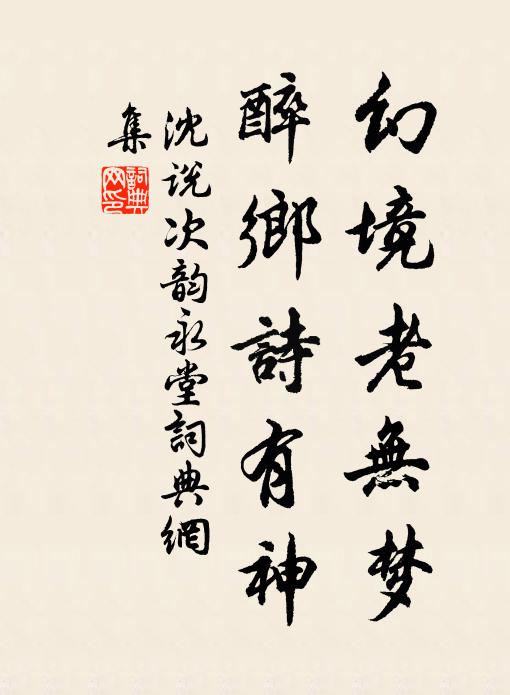 幻境老無梦
醉鄉詩有神
沈说次韵永堂詞典網
集
詞典
网印